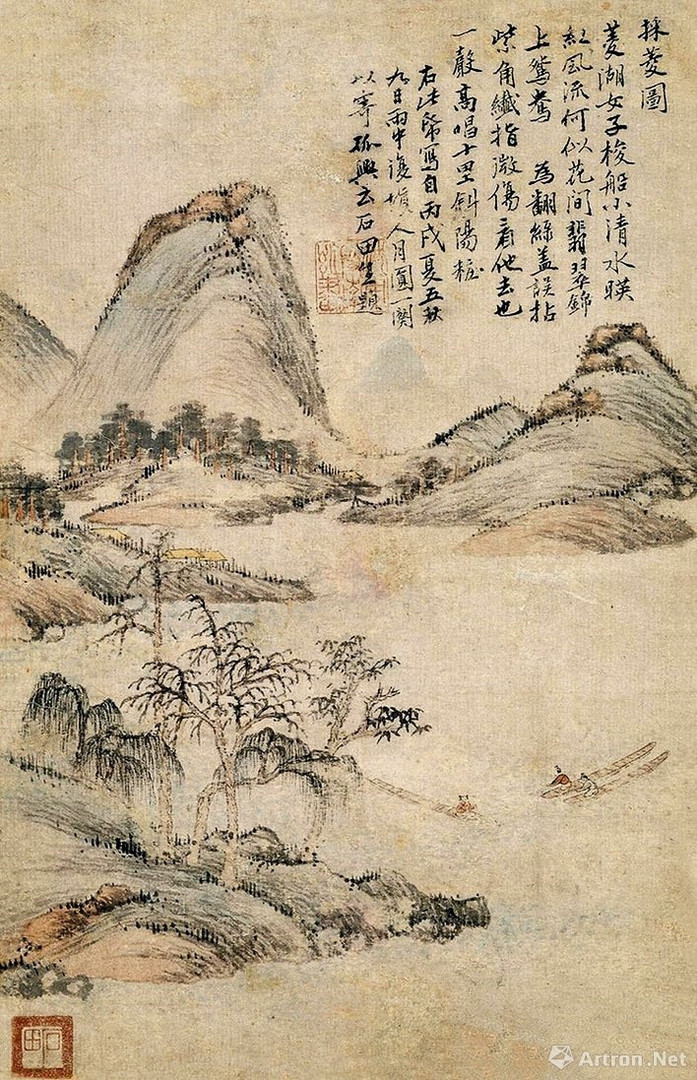 採菱圖
菱湖女子梭船小清水暎
紅風流何似花间翡翠錦
上鴛鴦 為翻絲盖誤拈
紫角纖指微傷看他去也
一聲高唱十里斜陽 粧
右此帋寫自丙戌夏五秋
九日雨中復填人月圓一闋
以寄孤興云石田生題
石田
Artron.Net